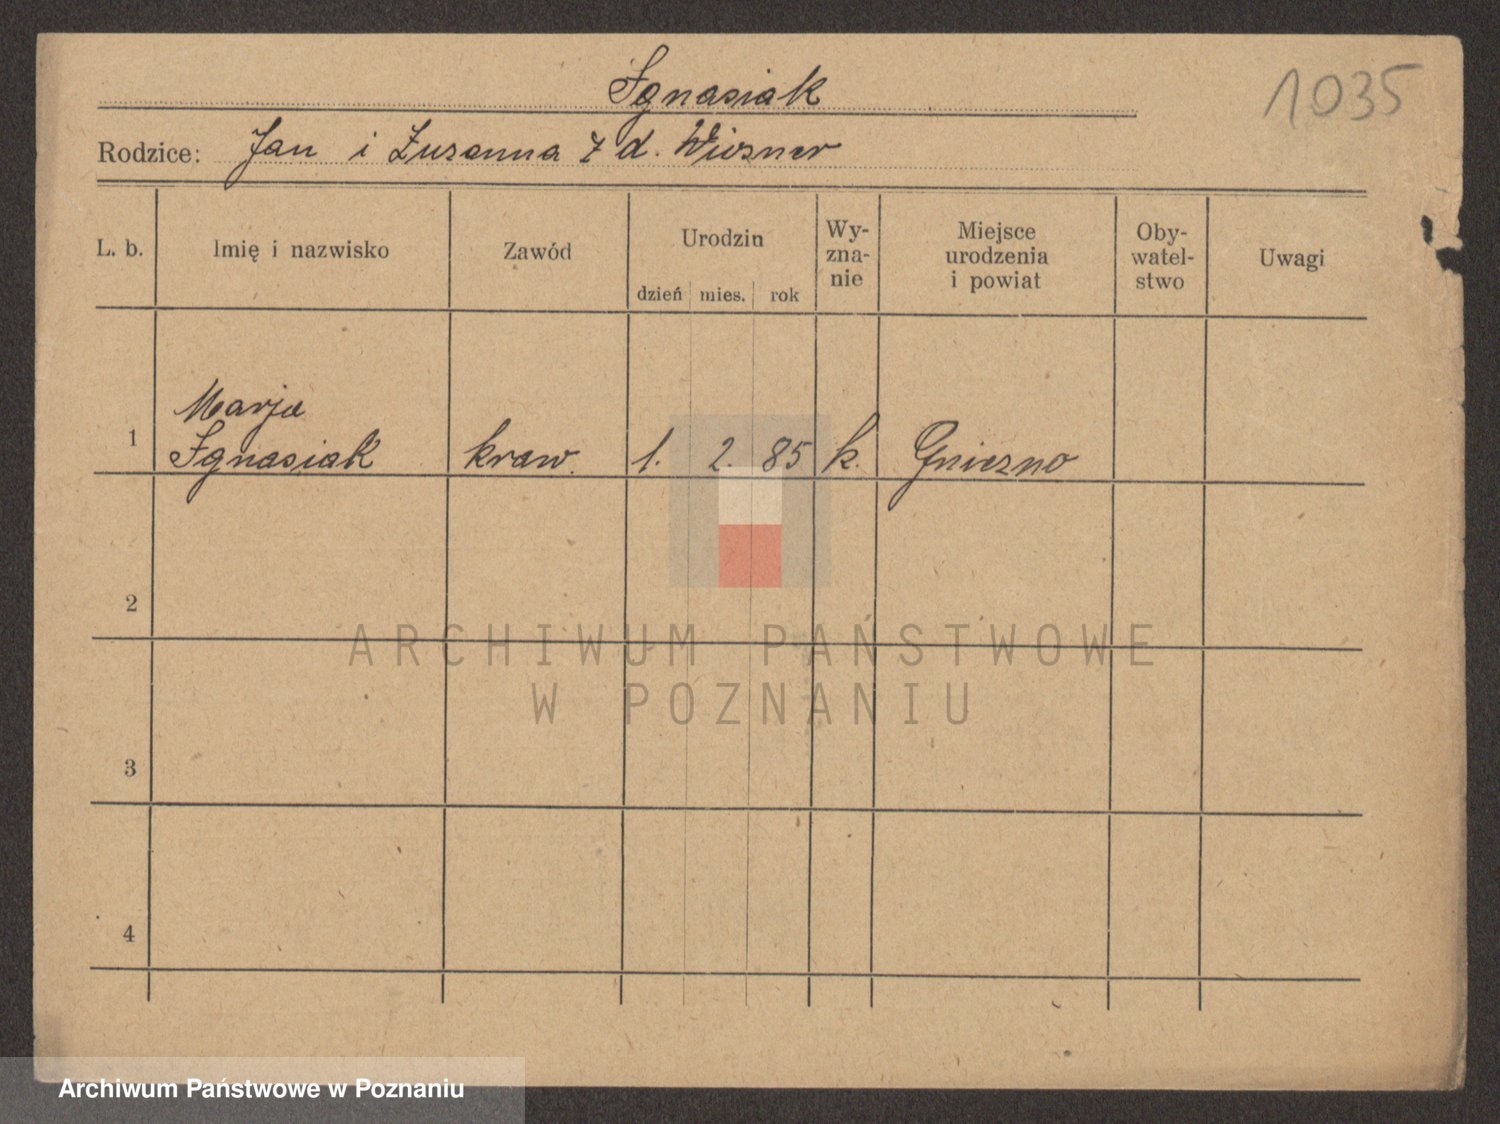 Ignasiak
1035
Rodzice: Jan i Zuzanna z d. Wiozner
L. b.
Imię i nazwisko
Zawód
Urodzin
dzień mies. rok
Wy-
zna-
nie
Miejsce
urodzenia
i powiat
Oby-
watel-
stwo
Uwagi
Marja
1 Ignasiak kraw. 1. 2. 85 k. Gniezno
2
ARCHIWUM PAŃSTWOWE
W POZNANIU
3
4
Archiwum Państwowe w Poznaniu